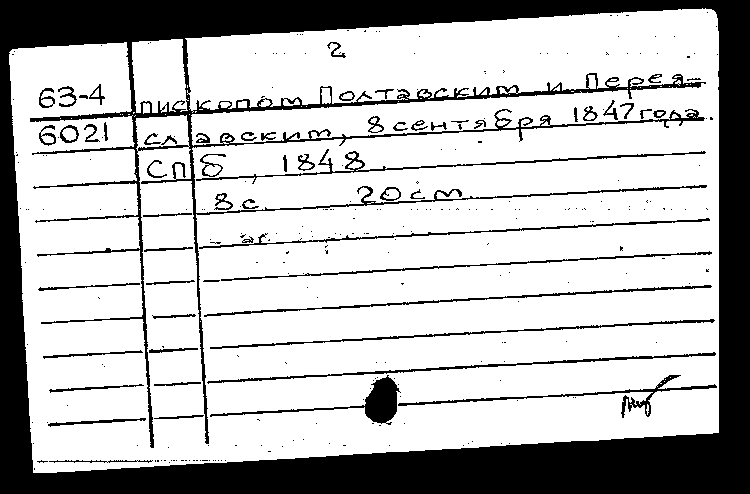 2
63-4 пископом Полтавским и Перея-
6021 славским, 8 сентября 1847 года.
СПб, 1848.
8 с. 20 см.